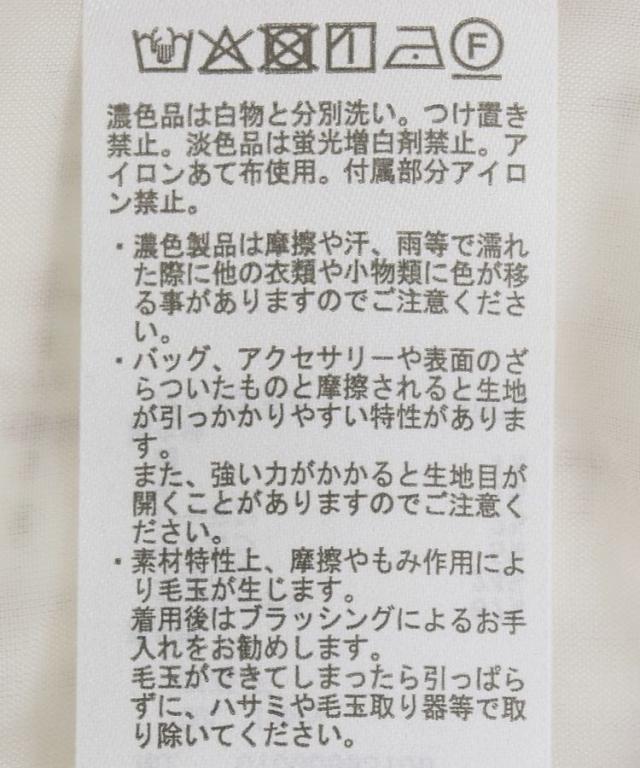 F
濃色品は白物と分別洗い。つけ置き
禁止。淡色品は蛍光増白剤禁止。ア
イロンあて布使用。付属部分アイロ
ン禁止。
・濃色製品は摩擦や汗、雨等で濡れ
た際に他の衣類や小物類に色が移
る事がありますのでご注意くださ
い。
・バッグ、アクセサリーや表面のざ
らついたものと摩擦されると生地
が引っかかりやすい特性がありま
す。
また、強い力がかかると生地目が
開くことがありますのでご注意く
ださい。
・素材特性上、摩擦やもみ作用によ
り毛玉が生じます。
着用後はブラッシングによるお手
入れをお勧めします。
毛玉ができてしまったら引っぱら
ずに、ハサミや毛玉取り器等で取
り除いてください。